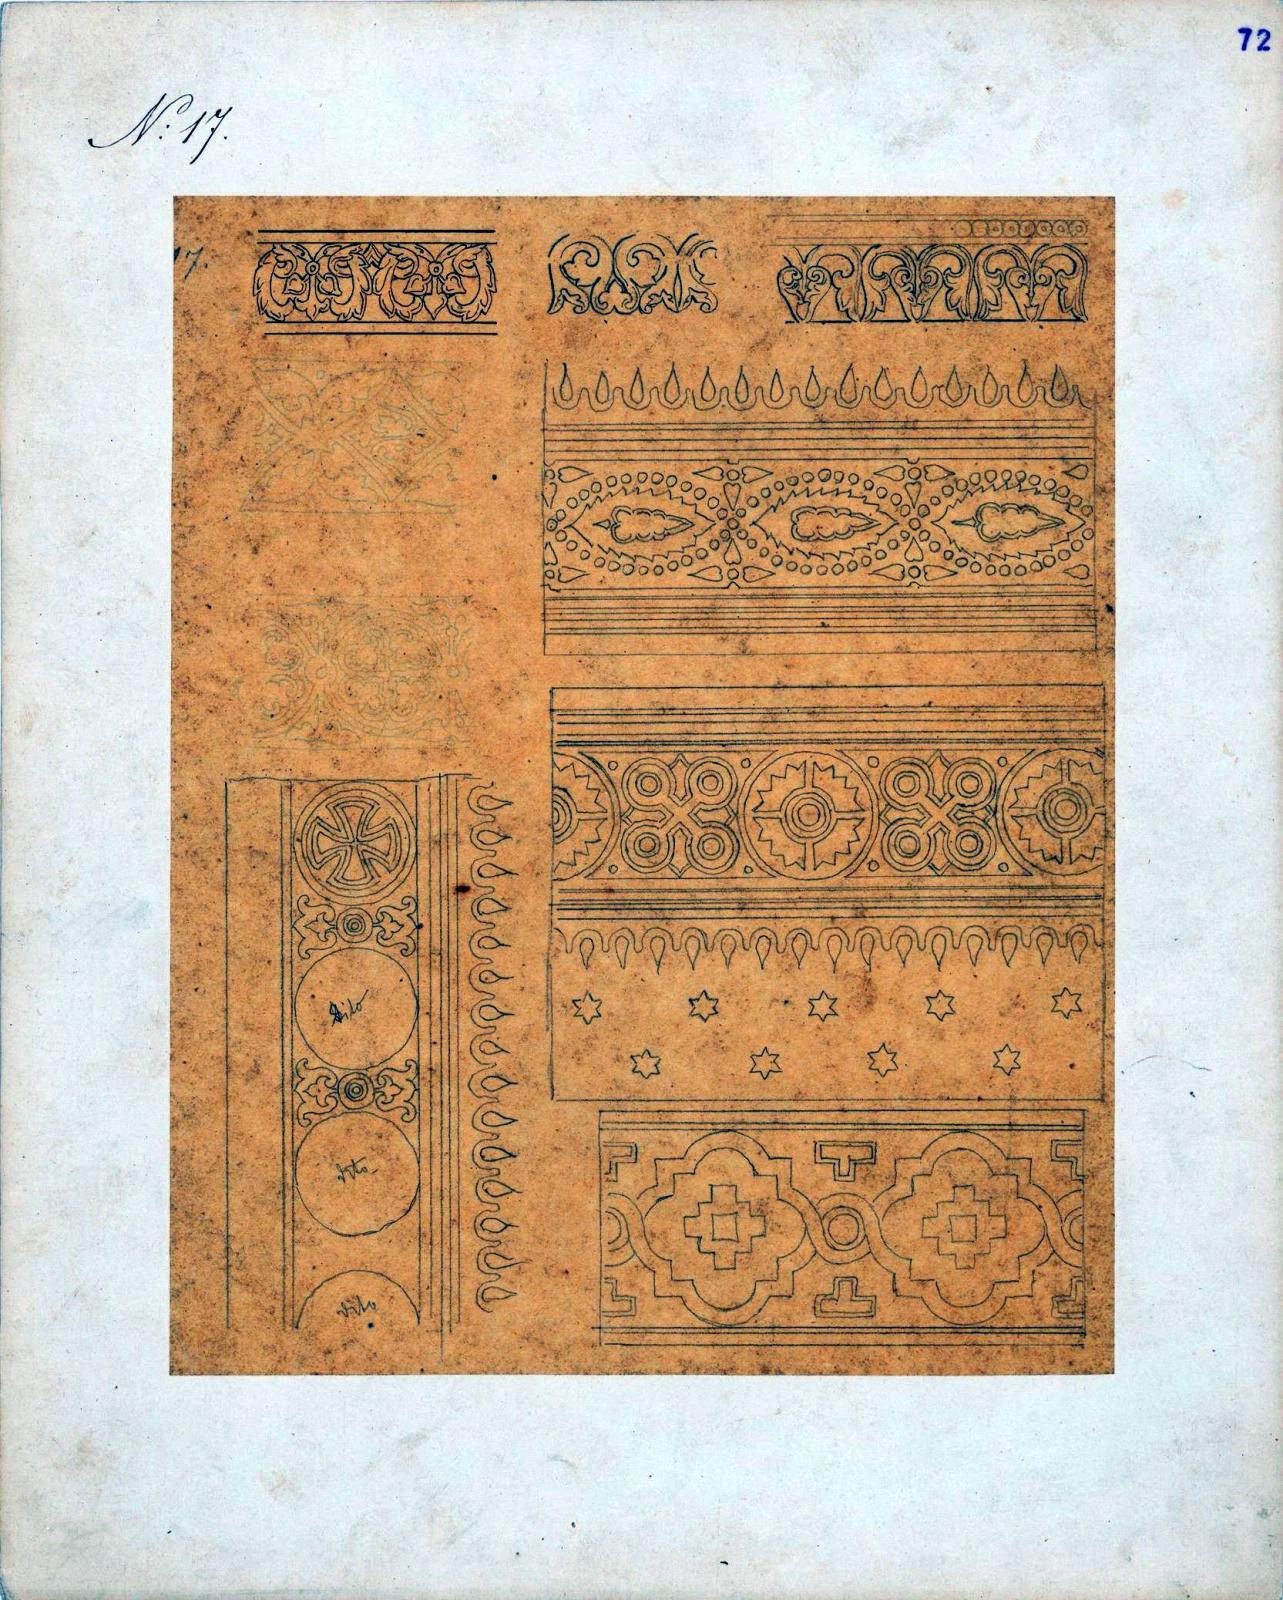 72
N: 17.
17.
Dito
dito
dito